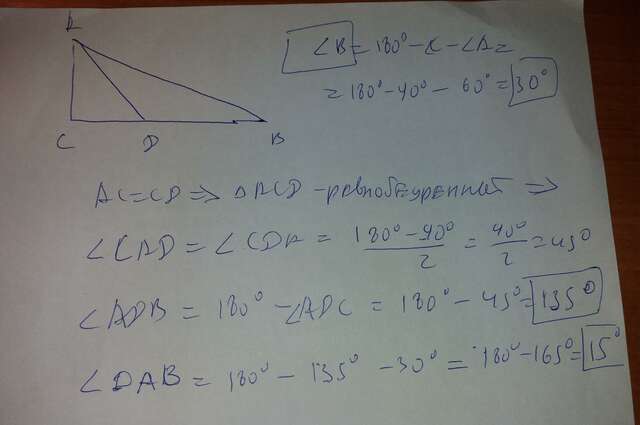 A
C D B
∠B = 180° - ∠C - ∠A =
= 180° - 90° - 60° = 30°
AC = CD => △ACD - равнобедренный =>
∠CAD = ∠CDA = (180° - 90°)/2 = 90°/2 = 45°
∠ADB = 180° - ∠ADC = 180° - 45° = 135°
∠DAB = 180° - 135° - 30° = 180° - 165° = 15°